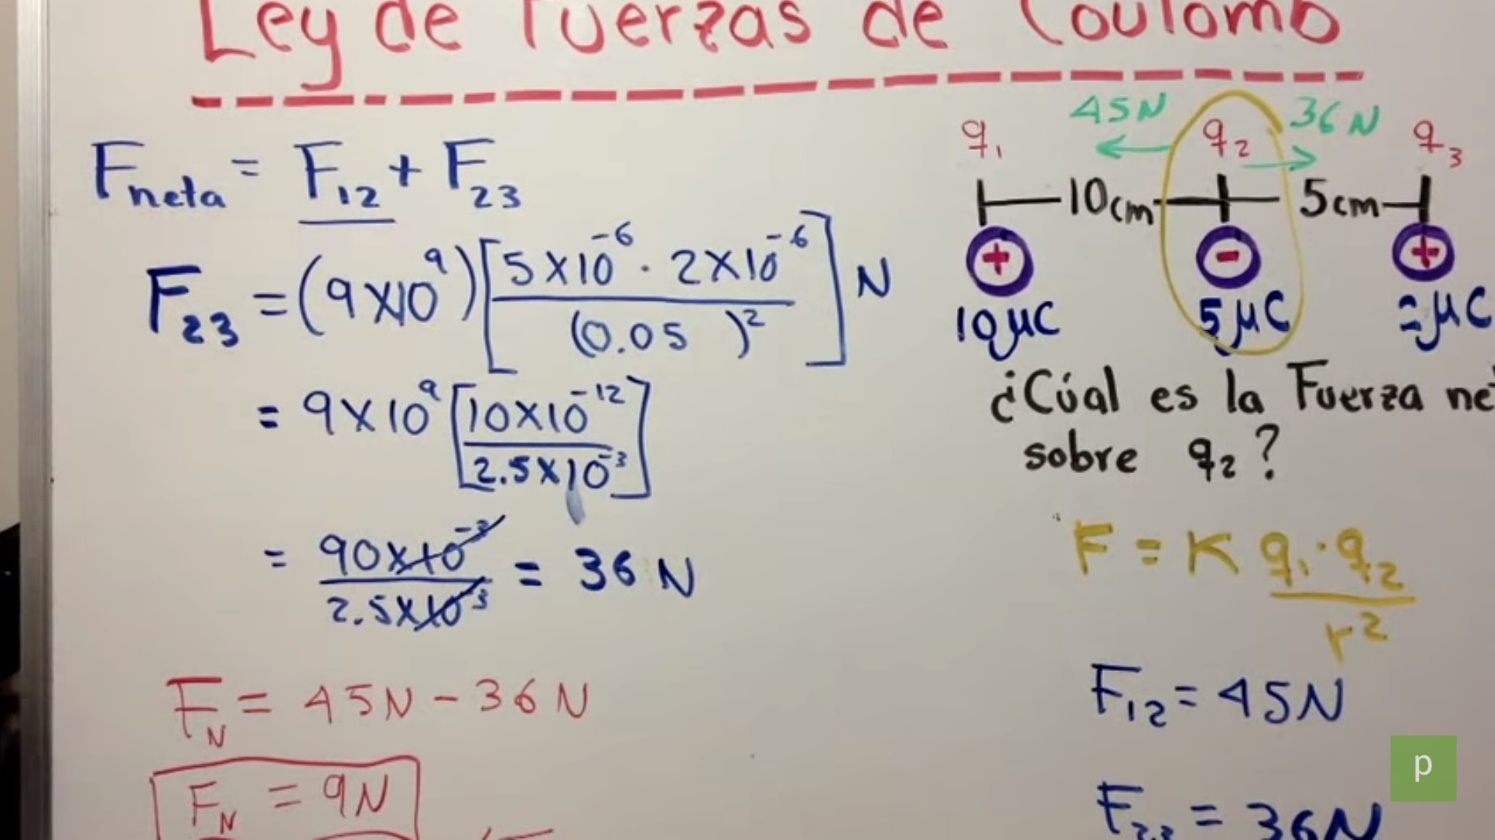 Ley de Fuerzas de Coulomb
Fneta = F12 + F23
F23 = (9x10^9) [5x10^-6 · 2x10^-6 / (0.05 )^2] N
= 9x10^9 [10x10^-12 / 2.5x10^-3]
= 90x10^-3 / 2.5x10^-3 = 36 N
FN = 45N - 36N
FN = 9N
45N 36N
q1 q2 q3
10cm 5cm
+ - +
10μC 5μC μC
¿Cúal es la Fuerza ne
sobre q2?
F = K q1·q2 / r^2
F12 = 45N
F23 = 36N
p